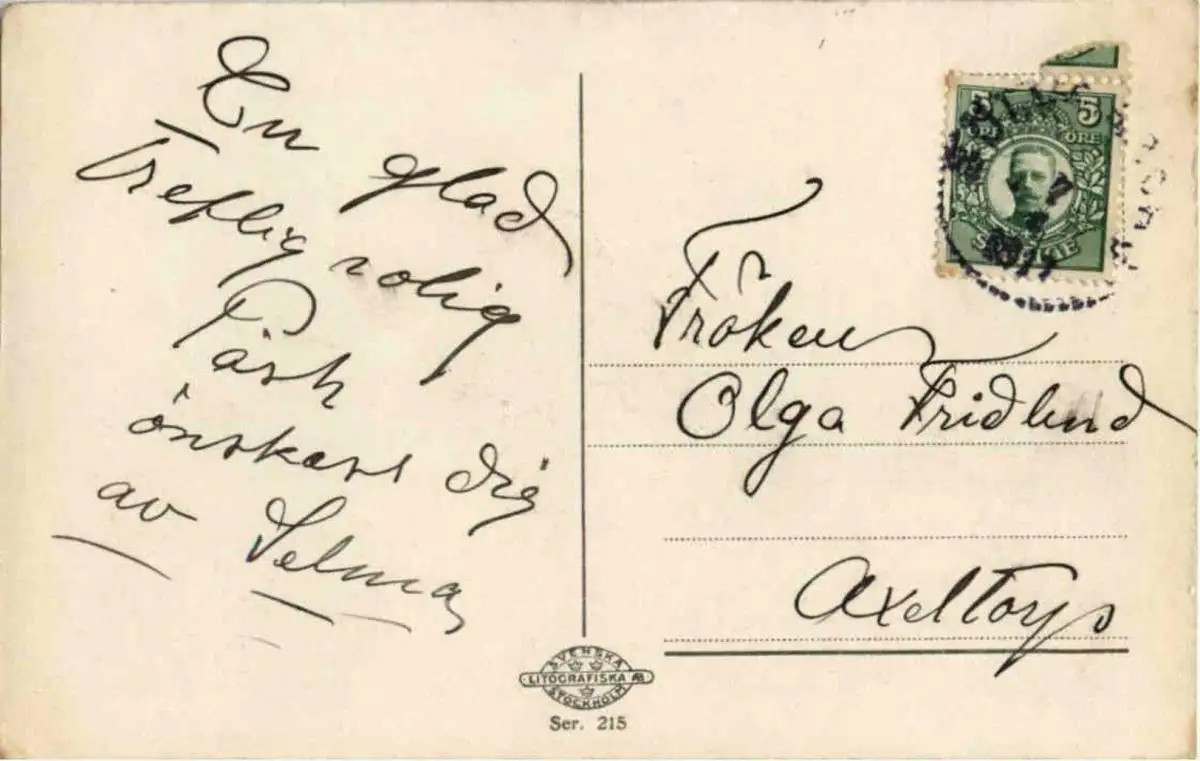 En glad
treflig rolig
Påsk
önskas dig
av Selma
5 5
ÖRE ÖRE
SVERIGE
Fröken
Olga Fridlund
Axeltorp
SVENSKA
LITOGRAFISKA AB
STOCKHOLM
Ser. 215